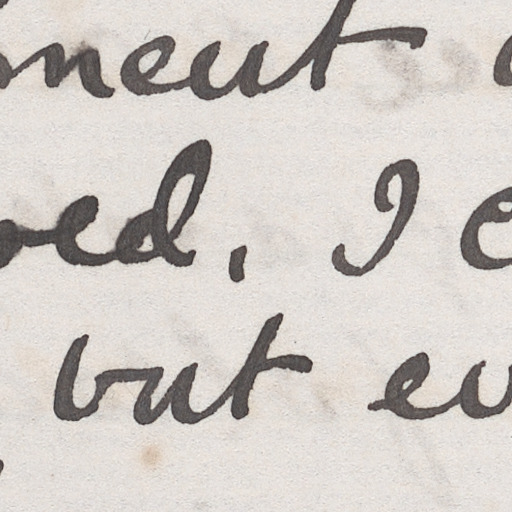 ment
ved, I
but ev